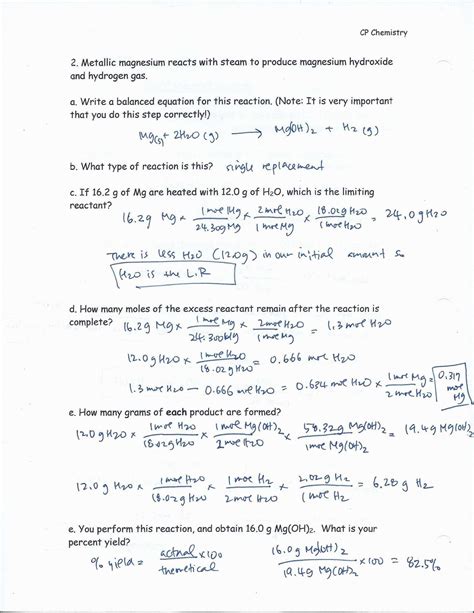 CP Chemistry
2. Metallic magnesium reacts with steam to produce magnesium hydroxide
and hydrogen gas.
a. Write a balanced equation for this reaction. (Note: It is very important
that you do this step correctly!)
Mg(s) + 2H2O (g) → Mg(OH)2 + H2 (g)
b. What type of reaction is this? single replacement
c. If 16.2 g of Mg are heated with 12.0 g of H2O, which is the limiting
reactant?
16.2g Mg × 1 mol Mg / 24.305g Mg × 2 mol H2O / 1 mol Mg × 18.02g H2O / 1 mol H2O = 24.0g H2O
There is less H2O (12.0g) in our initial amount so
H2O is the L.R
d. How many moles of the excess reactant remain after the reaction is
complete? 16.2g Mg × 1 mol Mg / 24.305g Mg × 2 mol H2O / 1 mol Mg = 1.3 mol H2O
12.0g H2O × 1 mol H2O / 18.02g H2O = 0.666 mol H2O
1.3 mol H2O - 0.666 mol H2O = 0.634 mol H2O × 1 mol Mg / 2 mol H2O = 0.317 mol Mg
e. How many grams of each product are formed?
12.0g H2O × 1 mol H2O / 18.02g H2O × 1 mol Mg(OH)2 / 2 mol H2O × 58.32g Mg(OH)2 / 1 mol Mg(OH)2 = 19.4g Mg(OH)2
12.0g H2O × 1 mol H2O / 18.02g H2O × 1 mol H2 / 2 mol H2O × 2.02g H2 / 1 mol H2 = 6.28g H2
e. You perform this reaction, and obtain 16.0 g Mg(OH)2. What is your
percent yield?
% yield = actual / theoretical ×100
16.0g Mg(OH)2 / 19.4g Mg(OH)2 ×100 = 82.5%